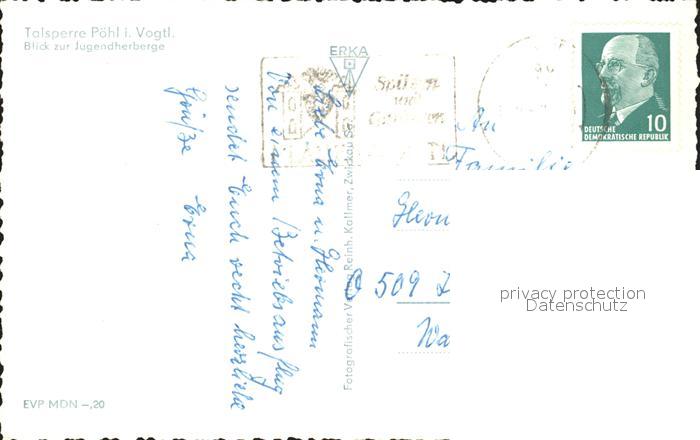 Talsperre Pöhl i. Vogtl.
Blick zur Jugendherberge
ERKA
Spitzen
und
DEUTSCHE
DEMOKRATISCHE REPUBLIK
10
An
Familie
O 509
Wa
privacy protection
Datenschutz
Fotografischer Verlag Reinh. Kallmer, Zwickau
Liebe Erna u. Hermann
Von einem Betriebsausflug
sendet Euch recht herzliche
Grüße Erna
EVP MDN –,20